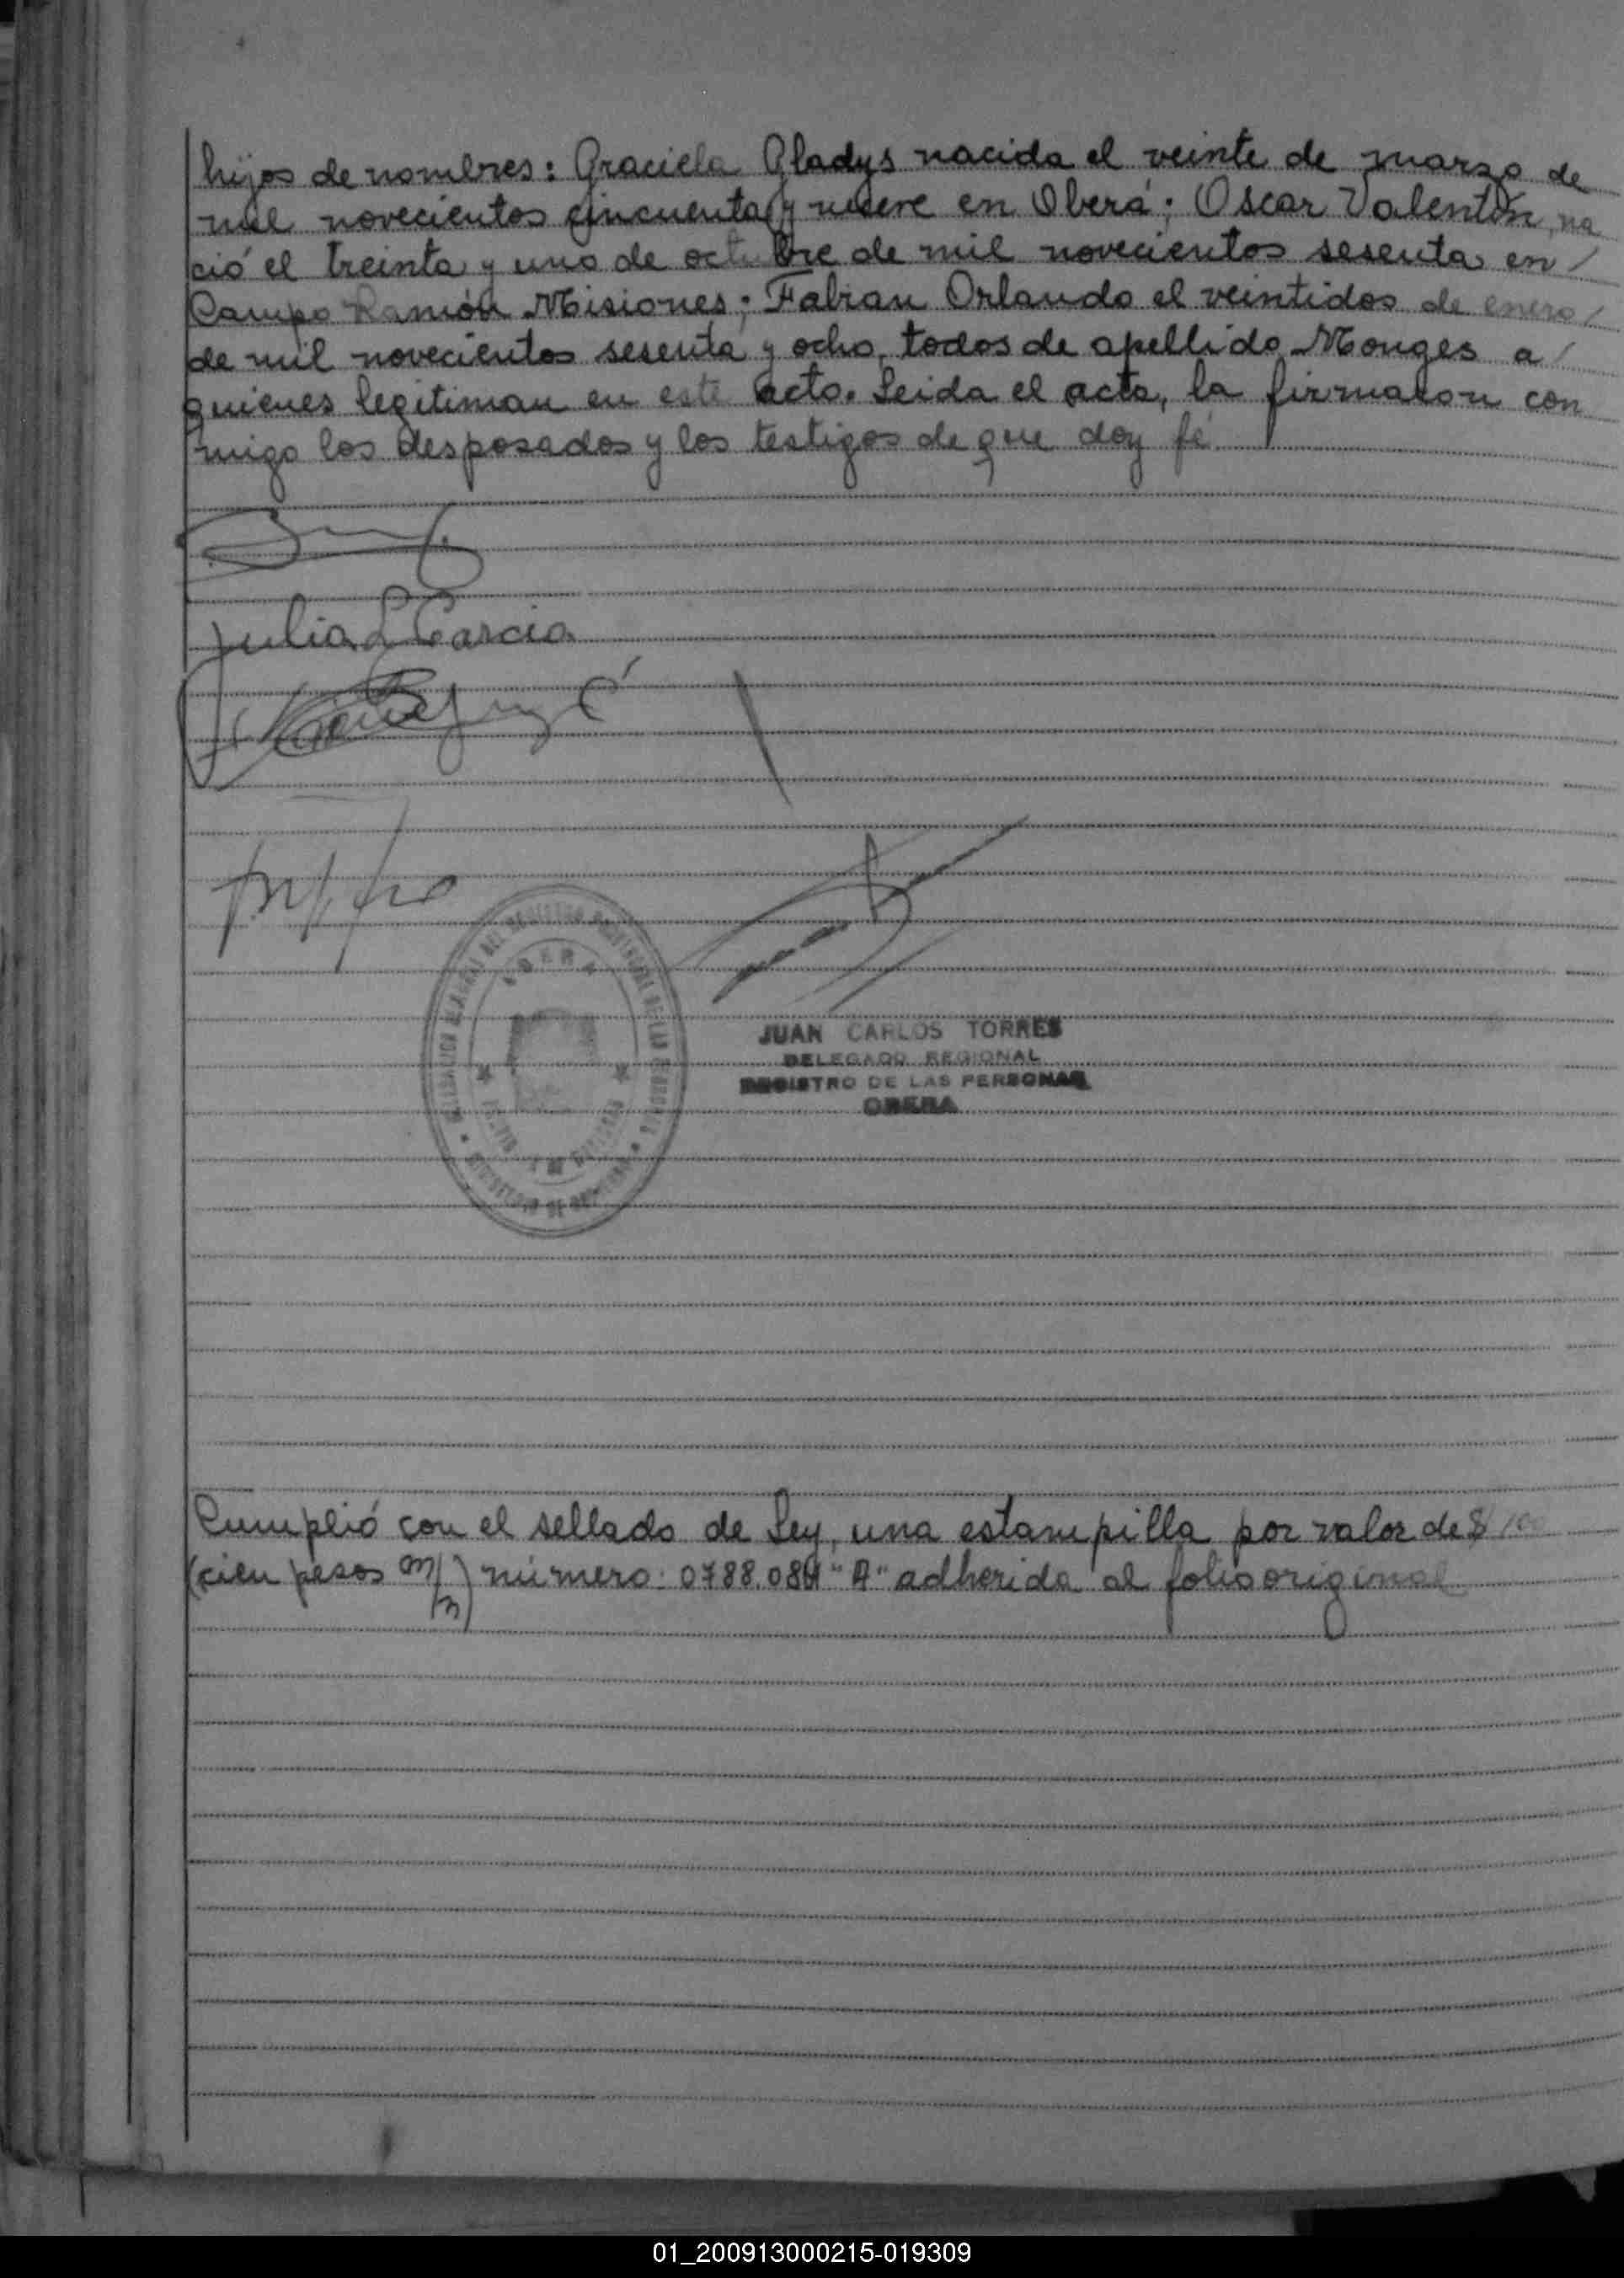 hijos de nombres: Graciela Gladys nacida el veinte de marzo de
mil novecientos cincuenta y nueve en Oberá; Oscar Valentín, na
ció el treinta y uno de octubre de mil novecientos sesenta en /
Campo Ramón Misiones; Fabian Orlando el veintidos de enero /
de mil novecientos sesenta y ocho, todos de apellido Monges a /
quienes legitiman en este acto. Leida el acta, la firmaron con
migo los desposados y los testigos de que doy fé.
Julia L Garcia
OBERA
JUAN CARLOS TORRES
DELEGADO REGIONAL
REGISTRO DE LAS PERSONAS
OBERA
Cumplió con el sellado de Ley, una estampilla por valor de $ 100
(cien pesos m/n) número: 0788.084 "A" adherida al folio original
01_200913000215-019309